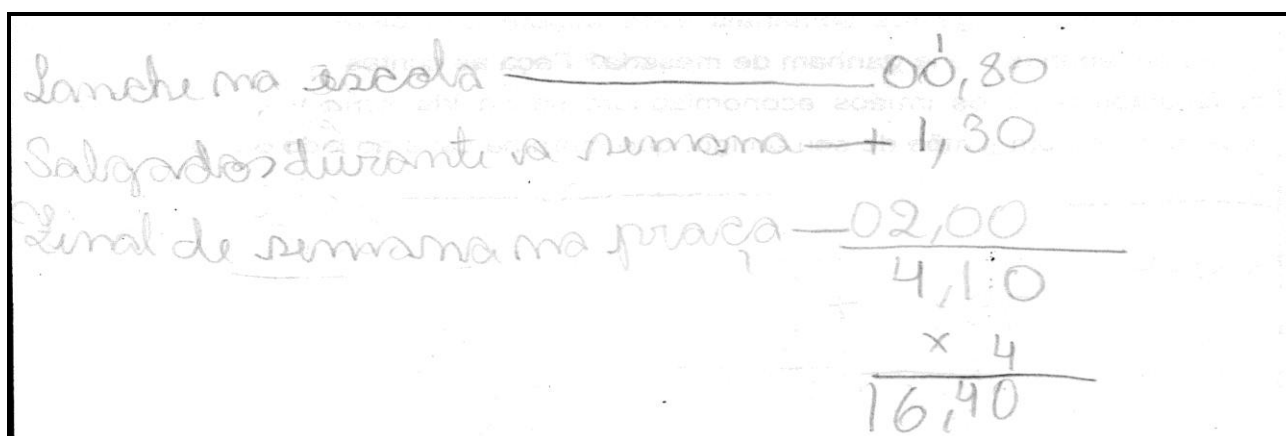 Lanche na escola 00,80
Salgados durante a semana + 1,30
Final de semana na praça 02,00
4,10
x 4
16,40